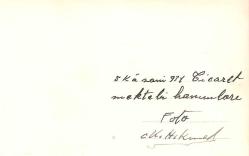 5 Kâ sani 928 Ticaret
mektebi hanımları
Foto